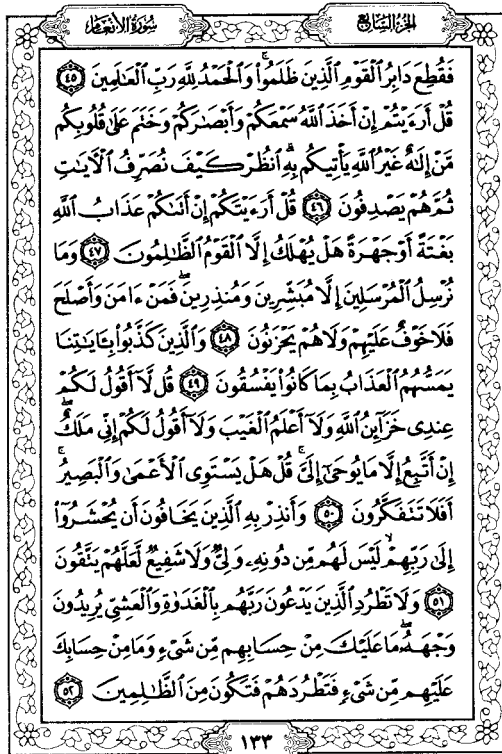 الجزء السابع
سورة الأنعام
فَقُطِعَ دَابِرُ الْقَوْمِ الَّذِينَ ظَلَمُوا۟ ۚ وَالْحَمْدُ لِلَّهِ رَبِّ الْعَٰلَمِينَ ٤٥
قُلْ أَرَءَيْتُمْ إِنْ أَخَذَ اللَّهُ سَمْعَكُمْ وَأَبْصَٰرَكُمْ وَخَتَمَ عَلَىٰ قُلُوبِكُم
مَّنْ إِلَٰهٌ غَيْرُ اللَّهِ يَأْتِيكُم بِهِ ۗ انظُرْ كَيْفَ نُصَرِّفُ الْءَايَٰتِ
ثُمَّ هُمْ يَصْدِفُونَ ٤٦ قُلْ أَرَءَيْتَكُمْ إِنْ أَتَىٰكُمْ عَذَابُ اللَّهِ
بَغْتَةً أَوْ جَهْرَةً هَلْ يُهْلَكُ إِلَّا الْقَوْمُ الظَّٰلِمُونَ ٤٧ وَمَا
نُرْسِلُ الْمُرْسَلِينَ إِلَّا مُبَشِّرِينَ وَمُنذِرِينَ ۖ فَمَنْ ءَامَنَ وَأَصْلَحَ
فَلَا خَوْفٌ عَلَيْهِمْ وَلَا هُمْ يَحْزَنُونَ ٤٨ وَالَّذِينَ كَذَّبُوا۟ بِـَٔايَٰتِنَا
يَمَسُّهُمُ الْعَذَابُ بِمَا كَانُوا۟ يَفْسُقُونَ ٤٩ قُل لَّا أَقُولُ لَكُمْ
عِندِى خَزَآئِنُ اللَّهِ وَلَا أَعْلَمُ الْغَيْبَ وَلَا أَقُولُ لَكُمْ إِنِّى مَلَكٌ ۖ
إِنْ أَتَّبِعُ إِلَّا مَا يُوحَىٰ إِلَىَّ ۚ قُلْ هَلْ يَسْتَوِى الْأَعْمَىٰ وَالْبَصِيرُ ۚ
أَفَلَا تَتَفَكَّرُونَ ٥٠ وَأَنذِرْ بِهِ الَّذِينَ يَخَافُونَ أَن يُحْشَرُوٓا۟
إِلَىٰ رَبِّهِمْ ۙ لَيْسَ لَهُم مِّن دُونِهِۦ وَلِىٌّ وَلَا شَفِيعٌ لَّعَلَّهُمْ يَتَّقُونَ
٥١ وَلَا تَطْرُدِ الَّذِينَ يَدْعُونَ رَبَّهُم بِالْغَدَوٰةِ وَالْعَشِىِّ يُرِيدُونَ
وَجْهَهُۥ ۖ مَا عَلَيْكَ مِنْ حِسَابِهِم مِّن شَىْءٍ وَمَا مِنْ حِسَابِكَ
عَلَيْهِم مِّن شَىْءٍ فَتَطْرُدَهُمْ فَتَكُونَ مِنَ الظَّٰلِمِينَ ٥٢
١٣٣